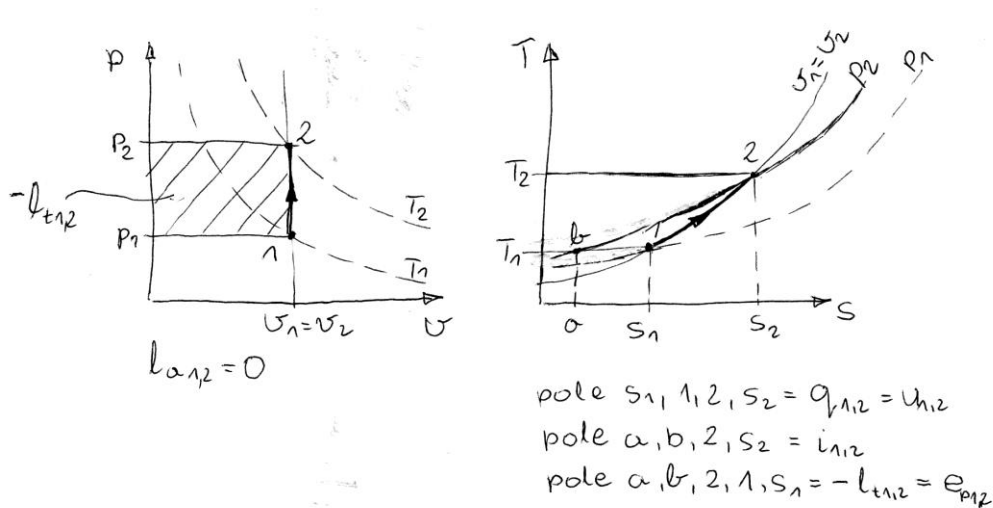 p
p₂
-lₜ₁,₂
p₁
2
1
T₂
T₁
v₁=v₂
v
lₐ₁,₂ = 0
T
v₁=v₂
p₂
p₁
2
T₂
b
1
T₁
a
s₁
s₂
s
pole s₁, 1, 2, s₂ = q₁,₂ = u₁,₂
pole a, b, 2, s₂ = i₁,₂
pole a, b, 2, 1, s₁ = -lₜ₁,₂ = eₚ₁,₂